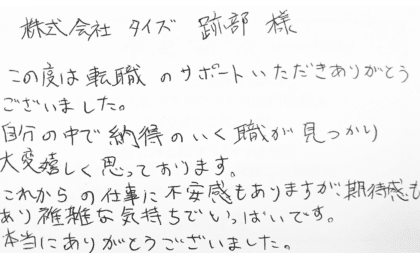 株式会社 タイズ 跡部 様
この度は転職のサポートいただきありがとう
ございました。
自分の中で納得のいく職が見つかり
大変嬉しく思っております。
これからの仕事に不安感もありますが期待感も
あり複雑な気持ちでいっぱいです。
本当にありがとうございました。